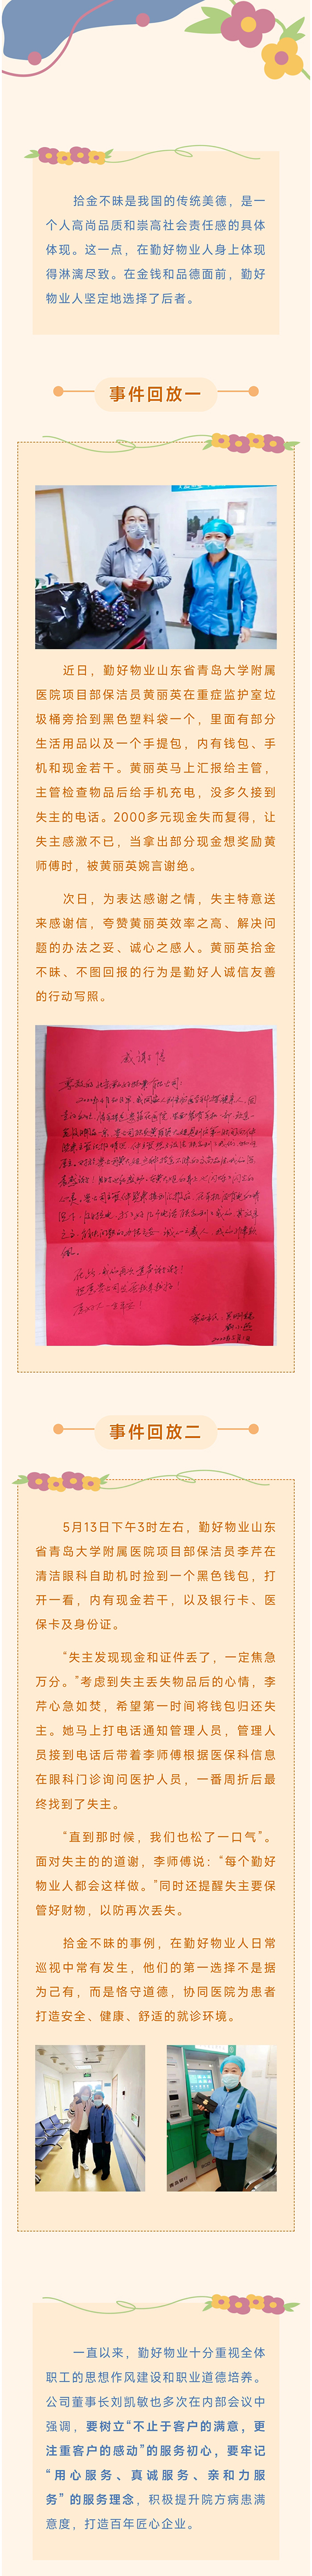 拾金不昧是我国的传统美德，是一
个人高尚品质和崇高社会责任感的具体
体现。这一点，在勤好物业人身上体现
得淋漓尽致。在金钱和品德面前，勤好
物业人坚定地选择了后者。
事件回放一
近日，勤好物业山东省青岛大学附属
医院项目部保洁员黄丽英在重症监护室垃
圾桶旁拾到黑色塑料袋一个，里面有部分
生活用品以及一个手提包，内有钱包、手
机和现金若干。黄丽英马上汇报给主管，
主管检查物品后给手机充电，没多久接到
失主的电话。2000多元现金失而复得，让
失主感激不已，当拿出部分现金想奖励黄
师傅时，被黄丽英婉言谢绝。
次日，为表达感谢之情，失主特意送
来感谢信，夸赞黄丽英效率之高、解决问
题的办法之妙、诚心之感人。黄丽英拾金
不昧、不图回报的行为是勤好人诚信友善
的行动写照。
感谢信
事件回放二
5月13日下午3时左右，勤好物业山东
省青岛大学附属医院项目部保洁员李芹在
清洁眼科自助机时捡到一个黑色钱包，打
开一看，内有现金若干，以及银行卡、医
保卡及身份证。
“失主发现现金和证件丢了，一定焦急
万分。”考虑到失主丢失物品后的心情，李
芹心急如焚，希望第一时间将钱包归还失
主。她马上打电话通知管理人员，管理人
员接到电话后带着李师傅根据医保科信息
在眼科门诊询问医护人员，一番周折后最
终找到了失主。
“直到那时候，我们也松了一口气”。
面对失主的的道谢，李师傅说：“每个勤好
物业人都会这样做。”同时还提醒失主要保
管好财物，以防再次丢失。
拾金不昧的事例，在勤好物业人日常
巡视中常有发生，他们的第一选择不是据
为己有，而是恪守道德，协同医院为患者
打造安全、健康、舒适的就诊环境。
一直以来，勤好物业十分重视全体
职工的思想作风建设和职业道德培养。
公司董事长刘凯敏也多次在内部会议中
强调，要树立“不止于客户的满意，更
注重客户的感动”的服务初心，要牢记
“用心服务、真诚服务、亲和力服
务” 的服务理念，积极提升院方病患满
意度，打造百年匠心企业。